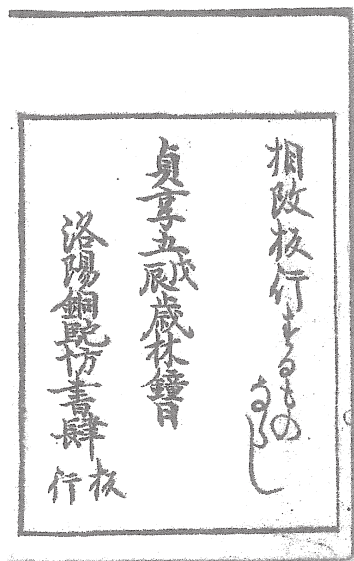 相改板行するもの
ならし
貞享五戊辰歳林鐘日
洛陽銅駝坊書肆
板行